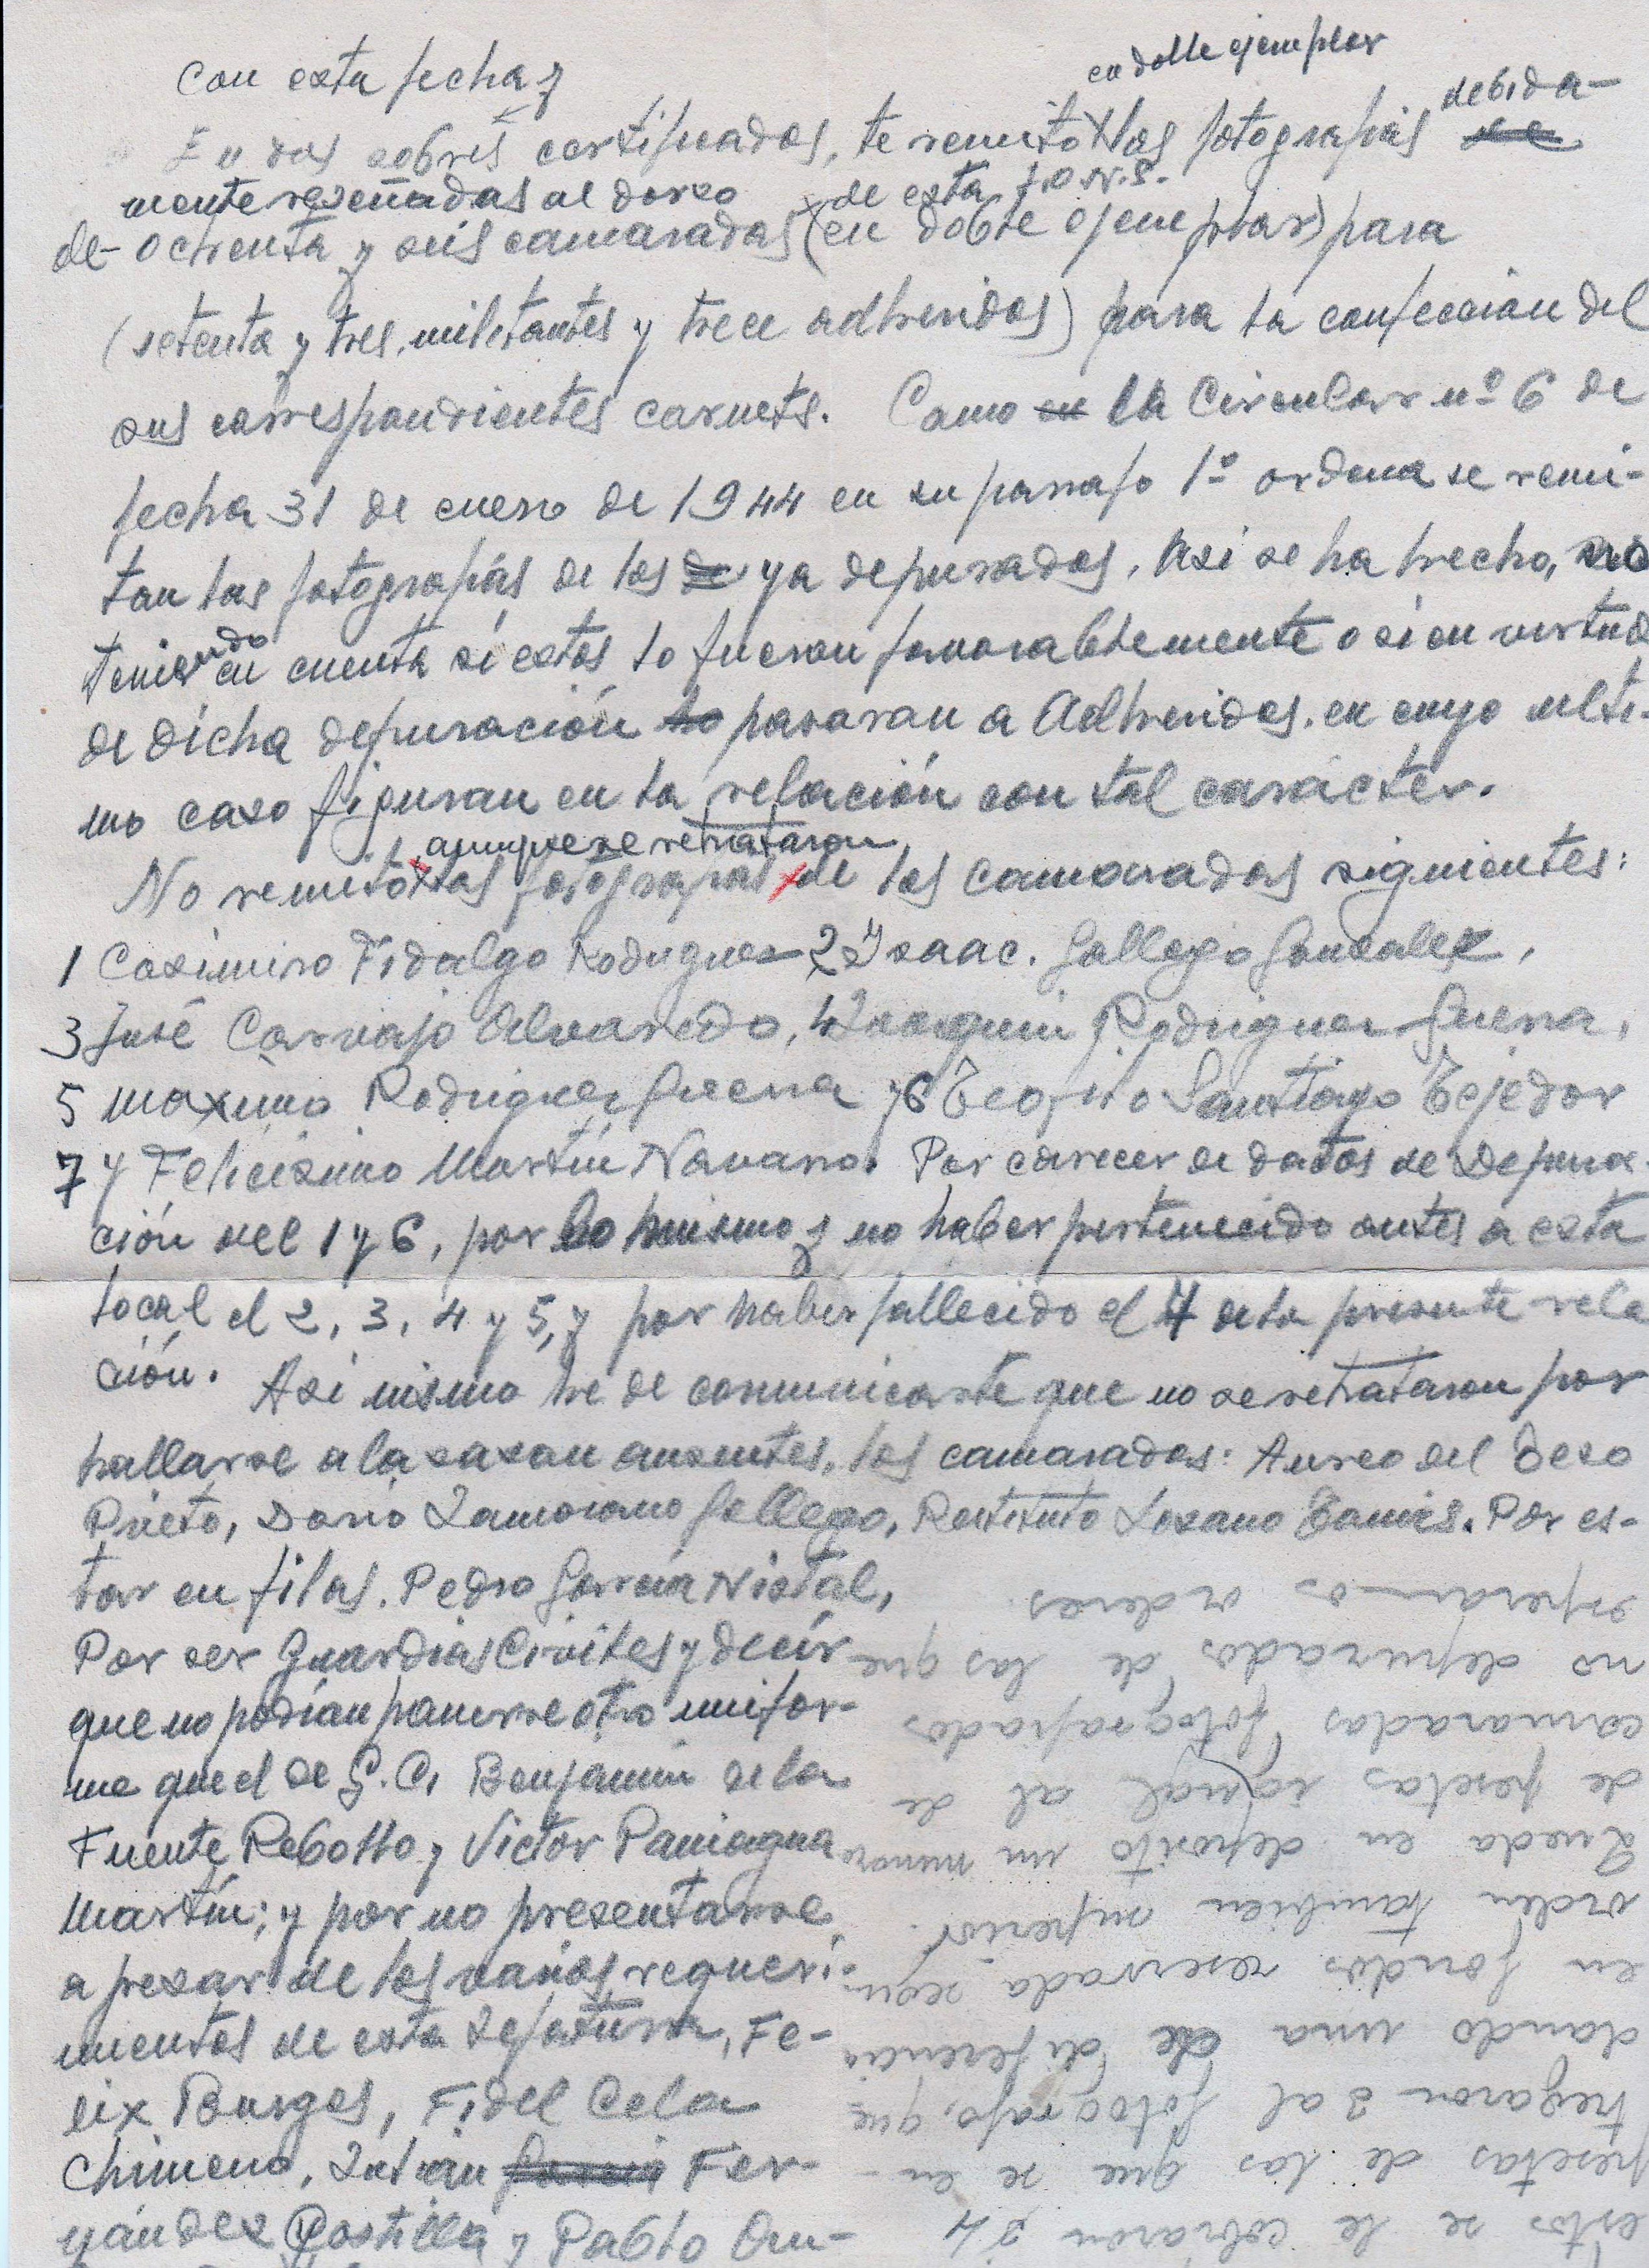 en doble ejemplar
Con esta fecha y
debida-
En dos sobres certificados, te remito las fotografias se
mente reseñadas al dorso de esta J.O.N.S.
de ochenta y seis camaradas (en doble ejemplar) para
(setenta y tres militantes y trece adheridos) para la confeccion del
sus correspondientes carnets. Como en la Circular nº 6 de
fecha 31 de enero de 1944 en su parrafo 1º ordena se remi-
tan las fotografias de los ya depurados, Asi se ha hecho, no
teniendo en cuenta si estos lo fueron favorablemente o si en virtud
de dicha depuración lo pasaran a Adheridos, en cuyo ulti-
mo caso figuran en la relación con tal carácter.
aunque se retrataron
No remito las fotografias de los camaradas siguientes:
1 Casimiro Fidalgo Rodriguez 2 Isaac. Gallego Gonzalez,
3 José Carvajo Alvaredo, 4 Joaquin Rodriguez Guerra,
5 Maximo Rodriguez Guerra y 6 Teofilo Santiago Tejedor
7 y Felicisimo Martín Navarro. Por carecer de datos de Depura-
ción del 1 y 6, por lo mismo y no haber pertenecido antes a esta
local el 2, 3, 4 y 5, y por haber fallecido el 7 de la presente rela
ción. Asi mismo he de comunicarte que no se retrataron por
hallarse a la sazon ausentes, los camaradas: Aureo del Teso
Prieto, Dario Zamorano Gallego, Restituto Lozano Tamis. Por es-
tar en filas. Pedro García Nistal,
Por ser Guardias Civiles y decir
que no podían ponerse otro unifor-
me que el de G.C. Benjamin de la
Fuente Rebollo y Victor Paniagua
Martín; y por no presentarse
a pesar de los varios requeri-
mientos de esta Jefatura, Fe-
lix Burgos, Fidel Cela
Chimeno, Julian Fer-
nández Costilla y Pablo Qui-
estos se le cobraron 24
pesetas de las que se en-
tregaron 3 al fotografo, que-
dando una de diferencia
en fondos reservada segun
orden tambien superior.
Queda en deposito un numero
de pesetas igual al de
camaradas fotografiados
no depurados de las que
esperamos ordenes.